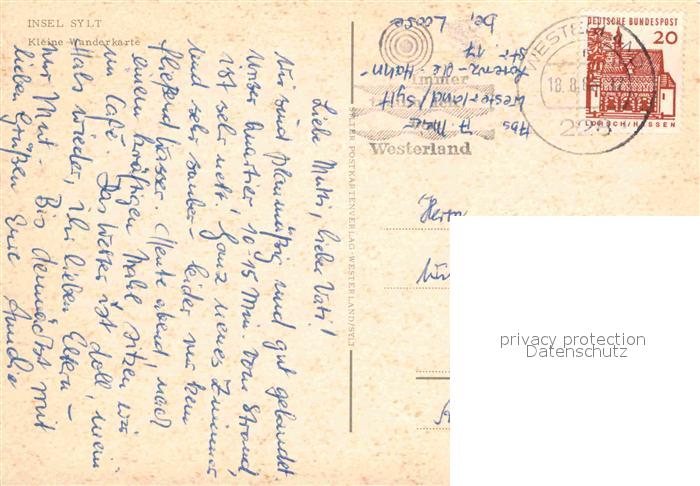 INSEL SYLT
Kleine Wanderkarte
Liebe Mutti, lieber Vati!
Wir sind planmäßig und gut gelandet.
Unser Quartier 10-15 Min. vom Strand,
ist sehr nett. Ganz neues Zimmer
und sehr sauber - leider nur kein
fließend Wasser. Heute abend, nach
einem kräftigen Mahl sitzen wir
im Café. Das Wetter ist doll, mein
Hals wieder, ihr lieben Eltern -
nur Mut - Bis demnächst mit
lieben Grüßen Eure
POSTKARTENVERLAG-WESTERLAND/SYLT
Abs
Westerland/Sylt
Lorenz-de-Hahn-
Str. 17
bei
immer
Westerland
WESTERLAND
18.8.
DEUTSCHE BUNDESPOST
20
LORSCH/HESSEN
Herrn
privacy protection
Datenschutz